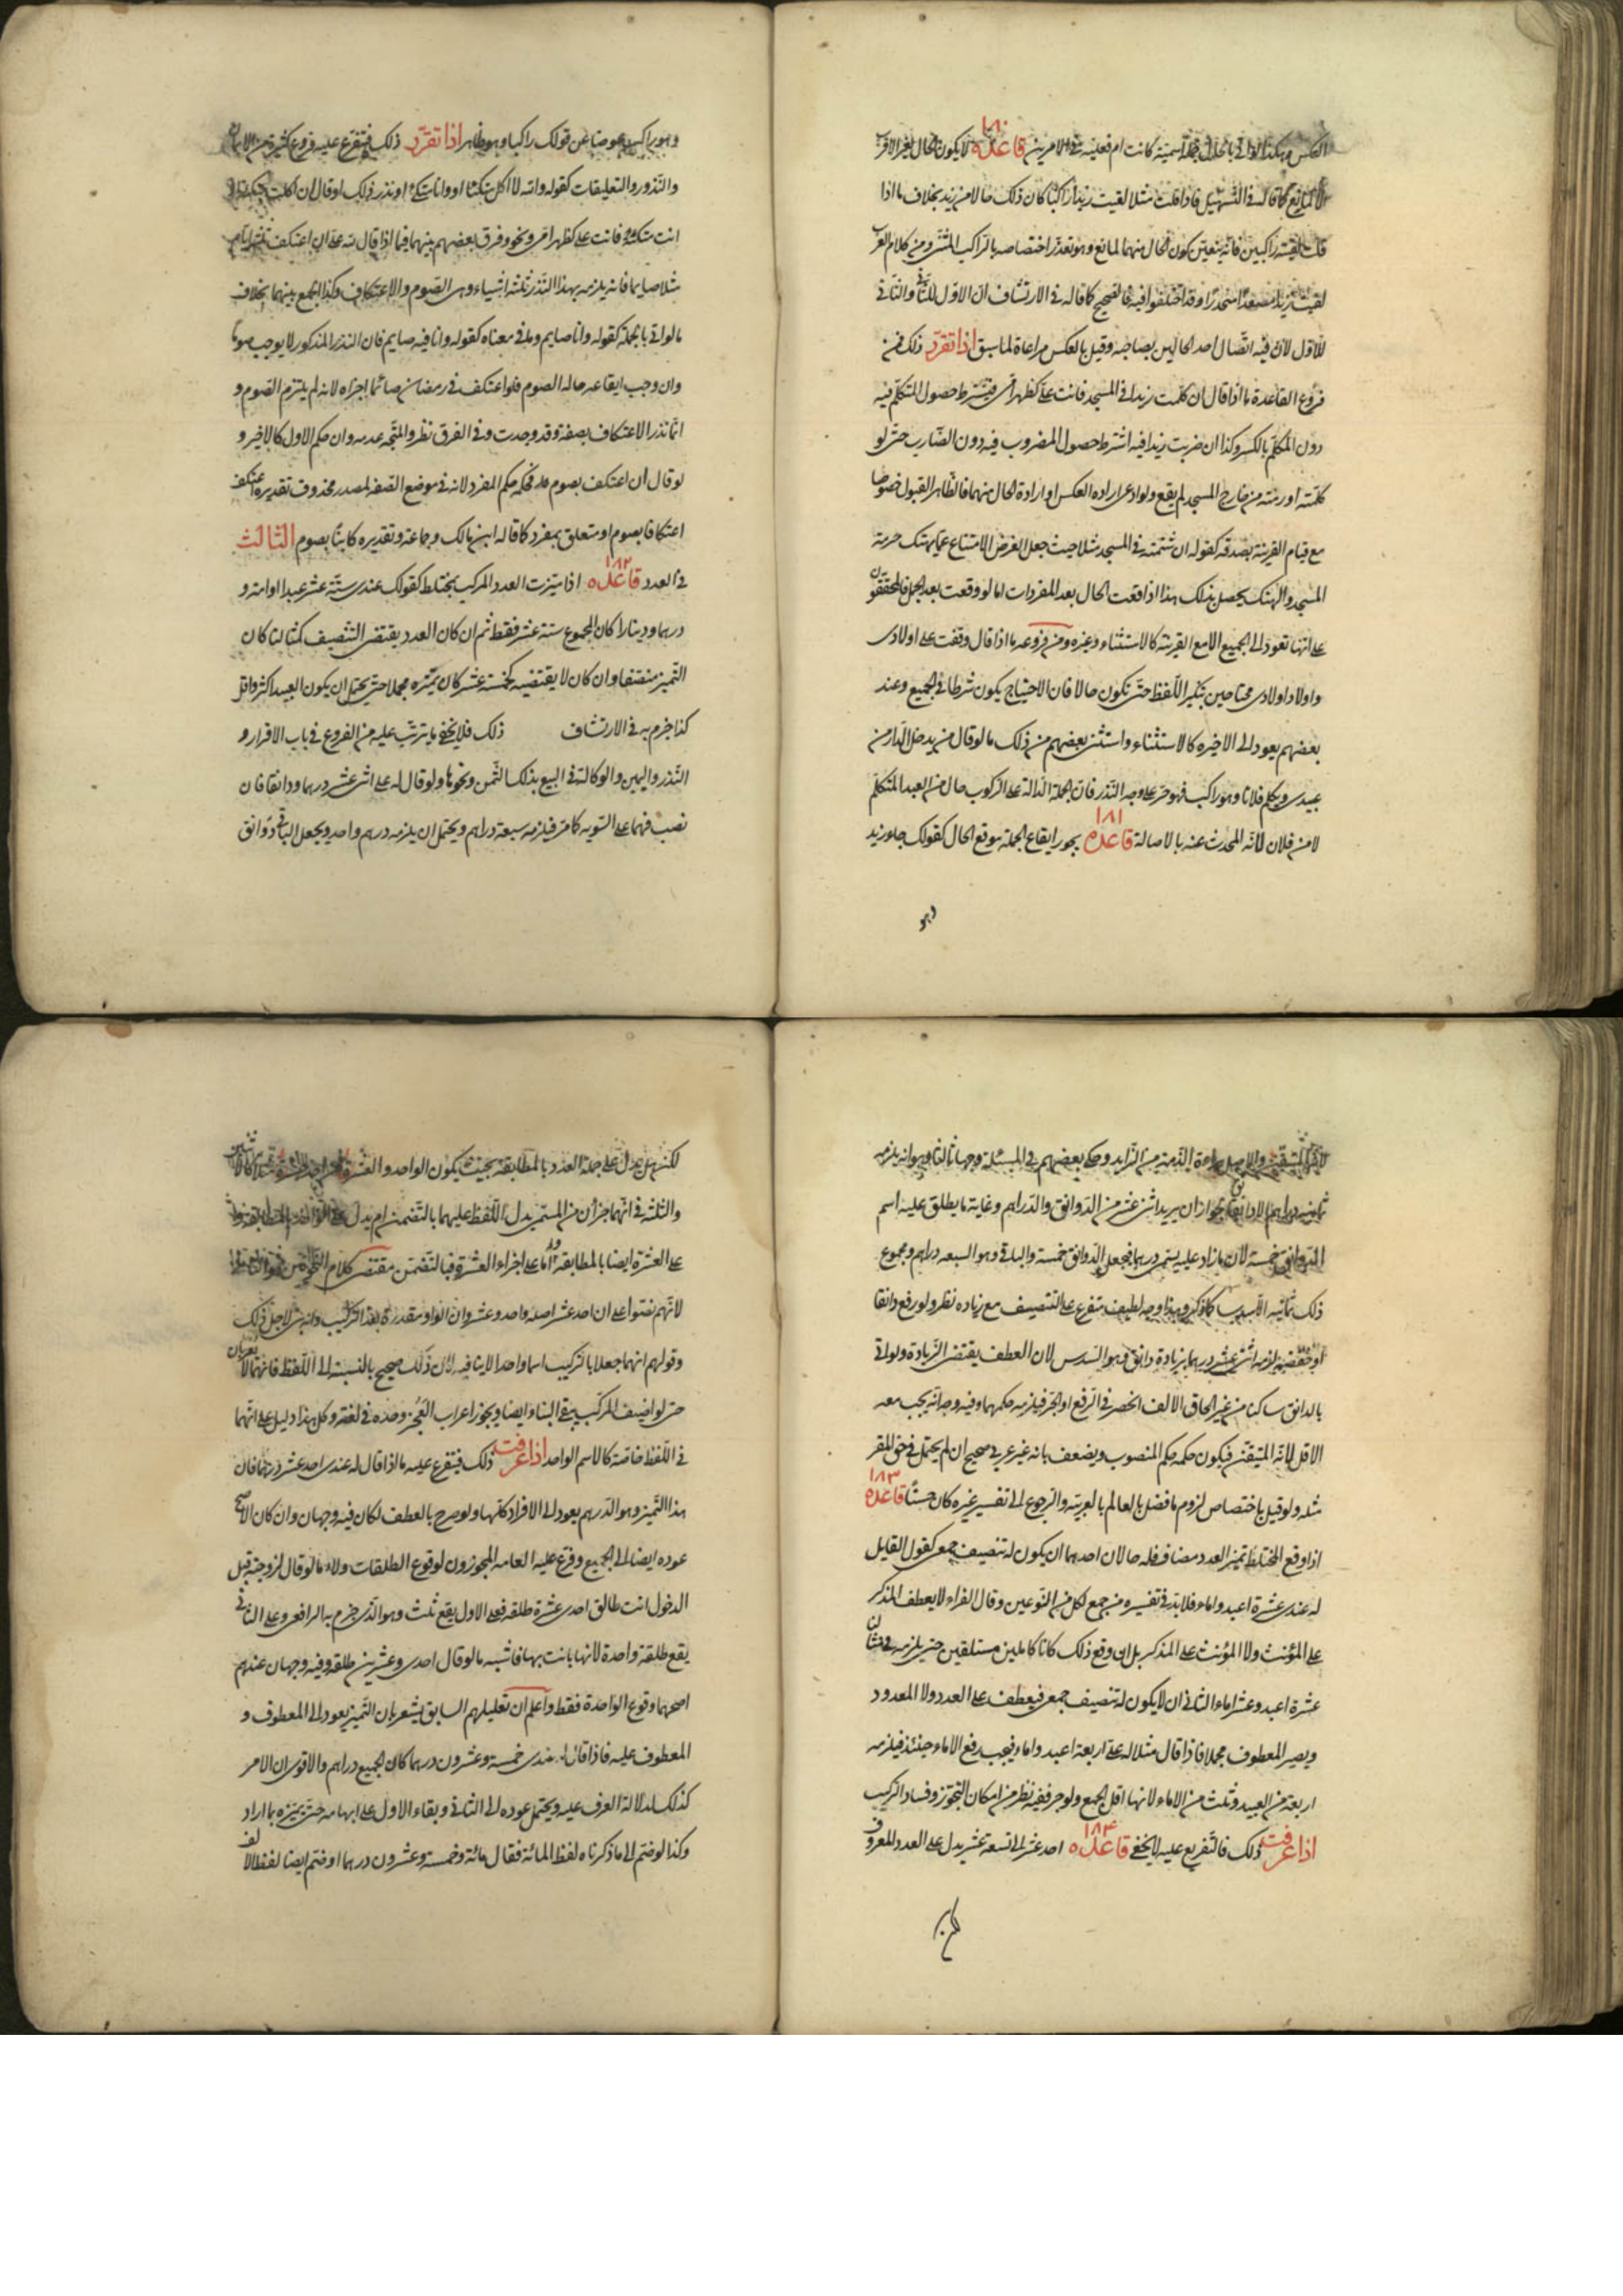 العكس وهكذا لو اتى بالحال جملة اسمية كانت ام فعلية في الامرين قاعدة ١٨٠ لا يكون الحال لغير الاقرب
الا لمانع كما قاله في التسهيل فاذا قلت مثلا لقيت زيدا راكبا كان ذلك حالا من زيد بخلاف ما اذا
قلت لقيته راكبين فانه يتعين كون الحال منهما لمانع وهو تعذر اختصاصه بالراكب المثنى ومن كلام العرب
لقيت زيدا مصعدا منحدرا وقد اختلفوا فيه فالصحيح كما قاله في الارتشاف ان الاول للثاني والثاني
للاول لان فيه اتصال احد الحالين بصاحبه وقيل بالعكس مراعاة لما سبق اذا تقرر ذلك فمن
فروع القاعدة ما اذا قال ان كلمت زيدا في المسجد فانت علي كظهر امي فيشترط حصول المتكلم فيه
دون المكلم بالكسر وكذا ان ضربت زيدا فيه اشترط حصول المضروب فيه دون الضارب حتى لو
كلمته او رمته من خارج المسجد لم يقع ولو ادعى ارادة العكس او ارادة الحال منهما فالظاهر القبول خصوصا
مع قيام القرينة بصدقه كقوله ان شتمته في المسجد مثلا حيث جعل الغرض الامتناع عما يهتك حرمة
المسجد والهتك يحصل بذلك هذا اذا وقعت الحال بعد المفردات اما لو وقعت بعد الجمل فالمحققون
على انها تعود الى الجميع الا مع القرينة كالاستثناء وغيره ومن فروعه ما اذا قال وقفت على اولادى
واولاد اولادى محتاجين بتنكير اللفظ حتى تكون حالا فان الاحتياج يكون شرطا في الجميع وعند
بعضهم يعود الى الاخيرة كالاستثناء واستثنى بعضهم من ذلك ما لو قال من يدخل الدار من
عبيدى ويكلم فلانا وهو راكب فهو حر على وجه النذر فان الجملة الدالة على الركوب حال من العبد المتكلم
لا من فلان لانه المحدث عنه بالاصالة قاعدة ١٨١ يجوز ايقاع الجملة موقع الحال كقولك جاء زيد
وهو
وهو راكب عوضا عن قولك راكبا وهو ظاهر اذا تقرر ذلك فيتفرع عليه فروع كثيرة من الايمان
والنذور والتعليقات كقوله والله لا اكل متكئا او وانا متكئ او نذر ذلك او قال ان اكلت متكئا او
انت متكئة فانت على كظهر امى ونحوه وفرق بعضهم بينهما فيما اذا قال لله على ان اعتكف ثلثة ايام
مثلا صايما فانه يلزمه بهذا النذر ثلثة اشياء وهى الصوم والاعتكاف وكذا الجمع بينهما بخلاف
ما لو اتى بالجملة كقوله وانا صايم وما في معناه كقوله وانا فيه صايم فان النذر المذكور لا يوجب صوما
وان وجب ايقاعه حاله الصوم فلو اعتكف في رمضان صائما اجزاه لانه لم يلتزم الصوم و
انما نذر الاعتكاف بصفة وقد وجدت وفى الفرق نظر والمتجه عدمه وان حكم الاول كالاخير و
لو قال ان اعتكف بصوم فحكمه حكم المفرد لانه في موضع الصفة لمصدر محذوف تقديره اعتكف
اعتكافا بصوم او متعلق بمفرد كما قاله ابن مالك وجماعة وتقديره كاينا بصوم الثالث
في العدد قاعدة ١٨٢ اذا ميزت العدد المركب بمختلط كقولك عندى ستة عشر عبدا او امة و
درهما ودينارا كان المجموع ستة عشر فقط ثم ان كان العدد يقتضى التنصيف كمثالنا كان
التميز منصفا وان كان لا يقتضيه كخمسة عشر كان تميزه مجملا حتى يحتمل ان يكون العبيد اكثر واقل
كذا جزم به في الارتشاف ذلك فلا يخفى ما يترتب عليه من الفروع في باب الاقرار و
النذر واليمين والوكالة في البيع بذلك الثمن ونحوها ولو قال له على اثنى عشر درهما ودانقا فان
نصب فهما على التسوية كما مر فيلزمه سبعة دراهم ويحتمل ان يلزمه درهم واحد ويجعل الباقى دوانق
لانه المتيقن والاصل براءة الذمة من الزايد وحكى بعضهم في المسئلة وجها ثالثا وهو انه يلزمه
ثمانية دراهم الا دانقا لجواز ان يريد اثنى عشر من الدوانق والدراهم وغاية ما يطلق عليه اسم
الدوانق خمسة لان ما زاد عليه يسمى درهما فيجعل الدوانق خمسة والباقى وهو السبعة دراهم ومجموع
ذلك ثمانية الا سدس كما ذكر وهذا وجه لطيف متفرع على التنصيف مع زيادة نظر ولو رفع دانقا
او خفضه لزمه اثنى عشر درهما بزيادة دانق وهو السدس لان العطف يقتضى الزيادة ولو اتى
بالدانق ساكنا من غير الحاق الالف انحصر في الرفع او الجر فيلزمه حكمهما وفيه وجه انه يجب معه
الاقل لانه المتيقن فيكون حكمه حكم المنصوب ويضعف بانه غير عربى صحيح ان لم يحتمل في حق المقر
مثله ولو قيل باختصاص لزوم ما فصل بالعالم بالعربية والرجوع الى تفسير غيره كان حسنا قاعدة ١٨٣
اذا وقع المختلط تميز العدد مضاف فله حالان احدهما ان يكون له تنصيف جمعى كقول القايل
له عندى عشرة اعبد واماء فلا بد في تفسيره من جمع لكل من النوعين وقال الفراء لا يعطف المذكر
على المؤنث ولا المؤنث على المذكر بل ان وقع ذلك كانا كاملين مستقلين حتى يلزمه في مثالنا
عشرة اعبد وعشر اماء الثانى ان لا يكون له تنصيف جمعى فيعطف على العدد ولا المعدود
ويصير المعطوف مجملا فاذا قال مثلا له على اربعة اعبد واماء فيجب رفع الاماء حينئذ فيلزمه
اربعة من العبيد وثلث من الاماء لانها اقل الجمع ولو جر ففيه نظر من امكان التجوز وفساد التركيب
اذا عرفت ذلك فالتفريع عليه لا يخفى قاعدة ١٨٤ احد عشر الى تسعة عشر يدل على العدد المعروف
لكن هل يدل على جملة العدد بالمطابقة بحيث يكون الواحد والعشرة
والثلثة في انهما جزأن من المسمى يدل اللفظ عليهما بالتضمن ام يدل على
على العشرة ايضا بالمطابقة واما على اجزاء العشرة فبالتضمن مقتضى كلام النحاة
لانهم نصوا على ان احد عشر اصله واحد وعشر وان الواو مقدرة بعد التركيب وانه بنى لاجل ذلك
وقولهم انهما جعلا بالتركيب اسما واحدا لا ينافيه لان ذلك صحيح بالنسبة الى اللفظ فانهما لا يعربان
حتى لو اضيف المركب بقى البناء ايضا ويجوز اعراب العجز وحده في لغة وكل هذا دليل على انهما
في اللفظ خاصة كالاسم الواحد اذا عرفت ذلك فيتفرع عليه ما اذا قال له عندى احد عشر درهما فان
هذا التميز وهو الدرهم يعود الى الافراد كلها ولو صرح بالعطف لكان فيه وجهان وان كان الاصح
عوده ايضا الى الجميع وفرع عليه العامة المجوزون لوقوع الطلقات ولاء ما لو قال لزوجته قبل
الدخول انت طالق احدى عشرة طلقة فعلى الاول يقع ثلث وهو الذى جزم به الرافعى وعلى الثانى
يقع طلقة واحدة لانها بانت بها فاشبه ما لو قال احدى وعشرين طلقة وفيه وجهان عندهم
اصحهما وقوع الواحدة فقط واعلم ان تعليلهم السابق يشعر بان التميز يعود الى المعطوف و
المعطوف عليه فاذا قال له عندى خمسة وعشرون درهما كان الجميع دراهم والاقوى ان الامر
كذلك لدلالة العرف عليه ويحتمل عوده الى الثانى وبقاء الاول على ابهامه حتى يميزه بما اراد
وكذا لو ضم الى ما ذكرناه لفظ المائة فقال مائة وخمسة وعشرون درهما او ضم ايضا لفظ الالف